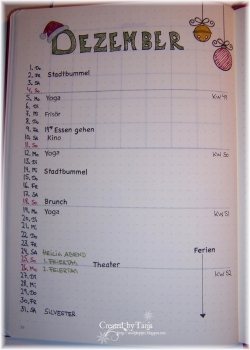 DEZEMBER
1. Do
2. Fr Stadtbummel
3. Sa
4. So
5. Mo Yoga KW 49
6. Di
7. Mi Frisör
8. Do
9. Fr 19⁰⁰ Essen gehen
10. Sa Kino
11. So
12. Mo Yoga KW 50
13. Di
14. Mi Stadtbummel
15. Do
16. Fr
17. Sa
18. So Brunch
19. Mo Yoga KW 51
20. Di
21. Mi
22. Do
23. Fr
24. Sa HEILIG ABEND Ferien
25. So 1. FEIERTAG
26. Mo 2. FEIERTAG Theater KW 52
27. Di
28. Mi
29. Do
30. Fr
31. Sa SILVESTER
Created by Tanja